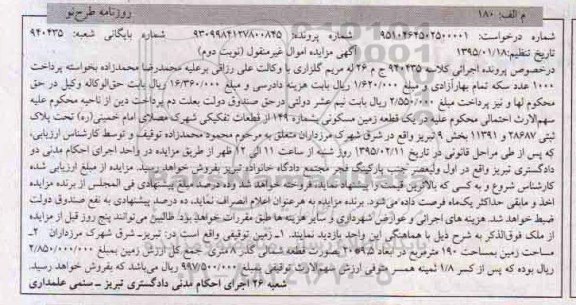 م الف: ۱۸۰
روزنامه طرح‌نو
شماره درخواست: ۹۵۱۰۴۶۴۵۰۲۵۰۰۰۰۱ شماره پرونده: ۹۳۰۹۹۸۴۱۲۷۸۰۰۸۴۵ شماره بایگانی شعبه: ۹۴۰۴۳۵
تاریخ تنظیم: ۱۳۹۵/۰۱/۱۸ آگهی مزایده اموال غیرمنقول (نوبت دوم)
درخصوص پرونده اجرائی کلاسه ۹۴۰۴۳۵ ج م ۲۶ له مریم گلزاری با وکالت علی رزاقی برعلیه محمدرضا محمدزاده بخواسته پرداخت
۱۰۰۰ عدد سکه تمام بهارآزادی و مبلغ ۱/۶۲۰/۰۰۰ ریال بابت هزینه دادرسی و مبلغ ۱۶/۳۶۰/۰۰۰ ریال بابت حق‌الوکاله وکیل در حق
محکوم لها و نیز پرداخت مبلغ ۲/۵۵۰/۰۰۰ ریال بابت نیم عشر دولتی درحق صندوق دولت بعلت دم پرداخت دین از ناحیه محکوم علیه
سهم‌الارث احتمالی محکوم علیه در یک قطعه زمین مسکونی بشماره ۱۴۹ از قطعات تفکیکی شهرک مصلای امام خمینی(ره) تحت پلاک
ثبتی ۲۸۶۸۷ و ۱۱۳۹۱ بخش ۹ تبریز واقع در شرق شهرک مرزداران متعلق به مرحوم محمود محمدزاده توقیف و توسط کارشناس ارزیابی،
که پس از طی مراحل قانونی در تاریخ ۱۳۹۵/۰۲/۱۱ روز شنبه از ساعت ۱۱ الی ۱۲ ظهر از طریق مزایده در واحد اجرای احکام مدنی دو
دادگستری تبریز واقع در اول ولیعصر جنب پارکینگ در مجتمع دادگاه خانواده تبریز بفروش خواهد رسید. مزایده از مبلغ ارزیابی شده
کارشناس شروع و به کسی که بالاترین قیمت را پیشنهاد نماید، فروخته خواهد شد وده درصد مبلغ پیشنهادی فی المجلس از برنده مزایده
اخذ و مابقی حداکثر یک‌ماه فرصت داده می‌شود. برنده مزایده به هرعنوان اعلام انصراف نماید، ده درصد پیشنهادی به نفع صندوق دولت
ضبط خواهد شد. هزینه های اجرائی و عوارض شهرداری و سایر هزینه ها طبق مقررات خواهد بود. طالبین می‌توانند پنج روز قبل از مزایده
از ملک فوق‌الذکر به شرح ذیل با هماهنگی این واحد بازدید نمایند. ۱ـ زمین توقیفی واقع است در: تبریز ـ شرق شهرک مرزداران ۲ـ
مساحت زمین بمساحت ۱۹۰ مترمربع در ابعاد بصورت قطعه شمالی گذر ۸ متری جمع کل ارزش زمین بمبلغ ۲/۸۵۰/۰۰۰/۰۰۰
ریال بوده که پس از کسر ۱/۸ ثمینه همسر متوفی ارزش سهم‌الارث توقیفی مبلغ ۹۹۷/۵۰۰/۰۰۰ ریال می‌باشد که بفروش خواهد رسید.
شعبه ۲۶ اجرای احکام مدنی دادگستری تبریز ـ سنمی علمداری